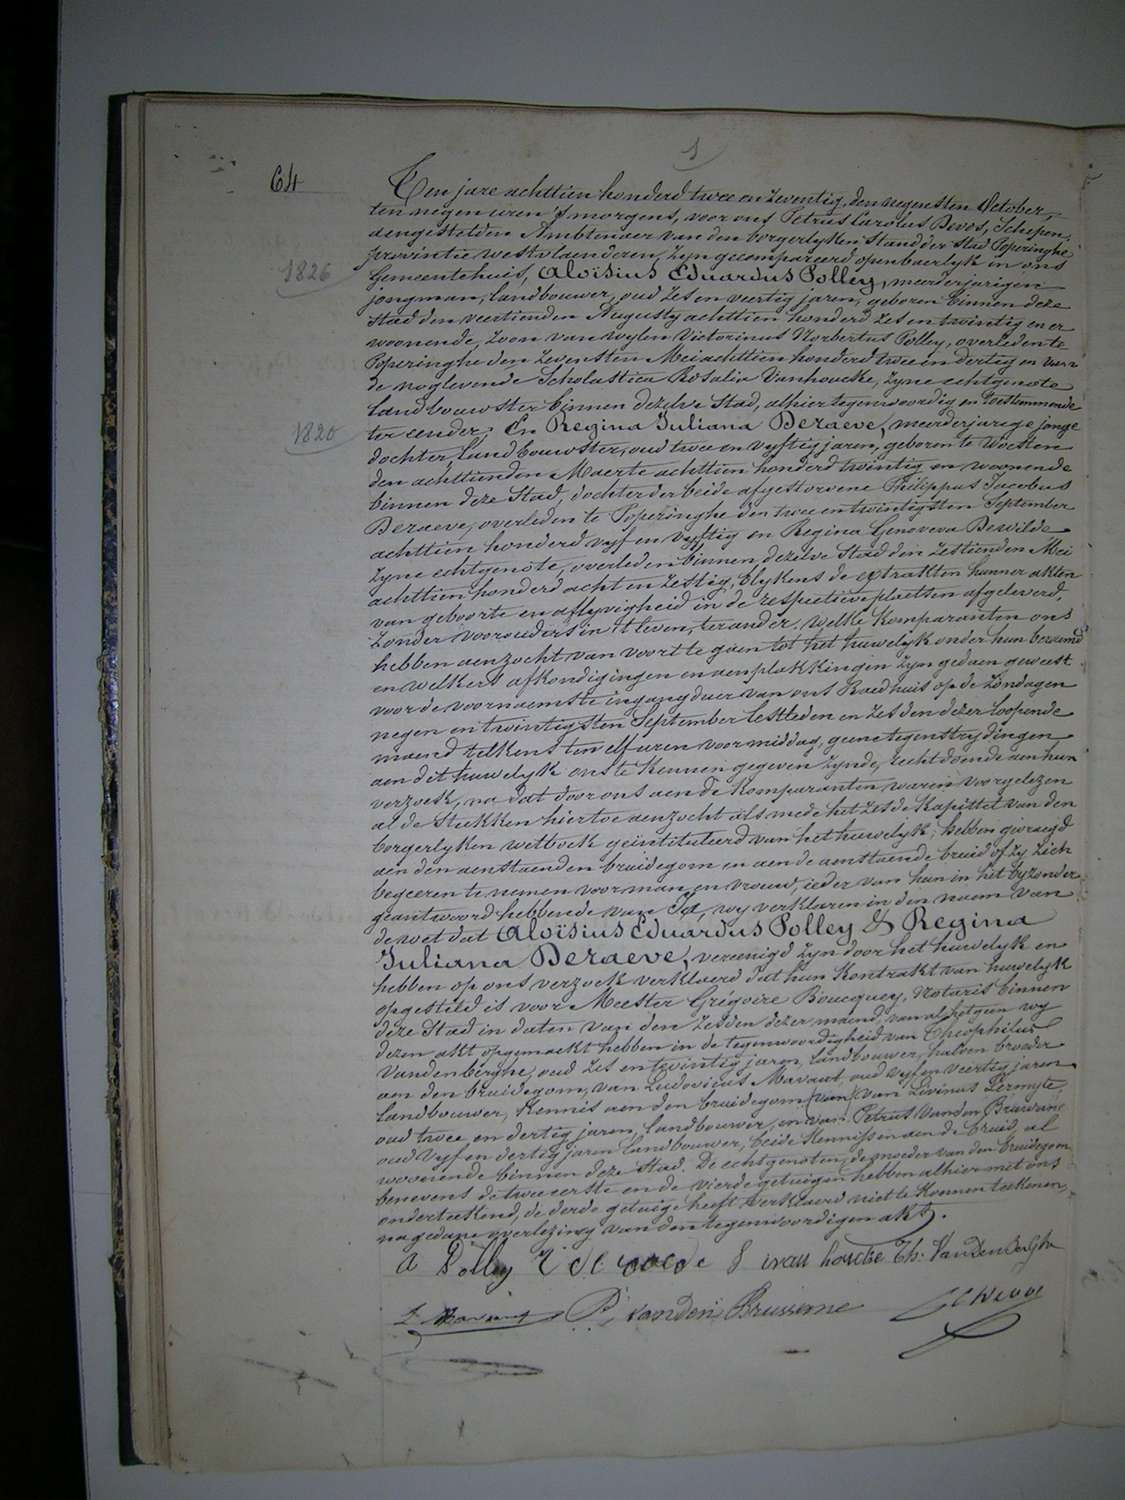 1
64
Ten jare achttien honderd twee en zeventig, den negensten October,
ten negen uren 's morgens, voor ons Petrus Carolus Devos, Schepen,
aengestelden Ambtenaer van den borgerlyken Stand der stad Poperinghe,
provintie westvlaenderen, zyn gecompareerd openbaerlyk in ons
1826
Gemeentehuis, Aloïsius Eduardus Polley, meerderjarigen
jongman, landbouwer, oud zes en veertig jaren, geboren binnen deze
stad den veertienden Augusty achttien honderd zes en twintig en er
woonende, zoon van wylen Victorinus Norbertus Polley, overleden te
Poperinghe den zevensten Mei achttien honderd twee en dertig en van
de noglevende Scholastica Rosalia Vanhoucke, zyne echtgenote
landbouwster binnen dezelve stad, alhier tegenwoordig en toestemmende
1820
ter eender; En Regina Juliana Deraeve, meerderjarige jonge
dochter landbouwster, oud twee en vyftig jaren, geboren te Woesten
den achttienden Maerte achttien honderd twintig en woonende
binnen deze Stad, dochter der beide afgestorvene Philippus Jacobus
Deraeve, overleden te Poperinghe den twee en twintigsten September
achttien honderd vyf en vyftig en Regina Genoveva Dewilde
zyne echtgenote, overleden binnen dezelve Stad den zestienden Mei
achttien honderd acht en zestig, blykens de extrakten hunner akten
van geboorte en aflyvigheid in de respectieve plaetsen afgeleverd,
zonder voorouders in 't leven, ter ander, welke Komparanten ons
hebben aenzocht van voort te gaen tot het huwelyk onder hun beraemd
en welkers afkondigingen en aenplakkingen zyn gedaen geweest
voor de voornaemste ingangduer van ons Raedhuis op de zondagen
negen en twintigsten September lestleden en zesden dezer loopende
maend telkens ten elf uren voormiddag, geene tegenstrydingen
aen dit huwelyk ons te kennen gegeven zynde, recht doende aen hun
verzoek, na dat door ons aen de Komparanten waren voorgelezen
al de stukken hiertoe aenzocht als mede het zesde Kapittel van den
borgerlyken wetboek geïntituleerd van het huwelyk; hebben gevraegd
aen den aenstaenden bruidegom en aen de aenstaende bruid of zy zich
begeeren te nemen voor man en vrouw, ieder van hun in het byzonder
geantwoord hebbende van Ja, wy verklaren in den naem van
de wet dat Aloïsius Eduardus Polley & Regina
Juliana Deraeve, vereenigd zyn door het huwelyk en
hebben op ons verzoek verklaerd dat hun Kontrakt van huwelyk
opgesteld is voor Meester Grégoire Boucquey, Notaris binnen
deze Stad in daten van den zesden dezer maend, van al hetgeen wy
dezen akt opgemaekt hebben in de tegenwoordigheid van Theophilus
Vandenberghe, oud zes en twintig jaren, landbouwer, halven broeder
aen den bruidegom, van Ludovicus Mavaut, oud vyf en veertig jaren
landbouwer, Kennis aen den bruidegom (van) van Livinus Dermyte,
oud twee en dertig jaren, landbouwer, en van Petrus Vanden Brussene
oud vyf en dertig jaren landbouwer, beide Kennissen aen de bruid, al
woonende binnen deze Stad. De echtgenoten, de moeder van den bruidegom
benevens de twee eerste en de vierde getuigen hebben alhier met ons
onderteekend, de derde getuige heeft verklaerd niet te Konnen teekenen,
na gedane overlezing van den tegenwoordigen akt.
A Polley S van houcke Th. VanDenBerghe
P. vanden Brusseme